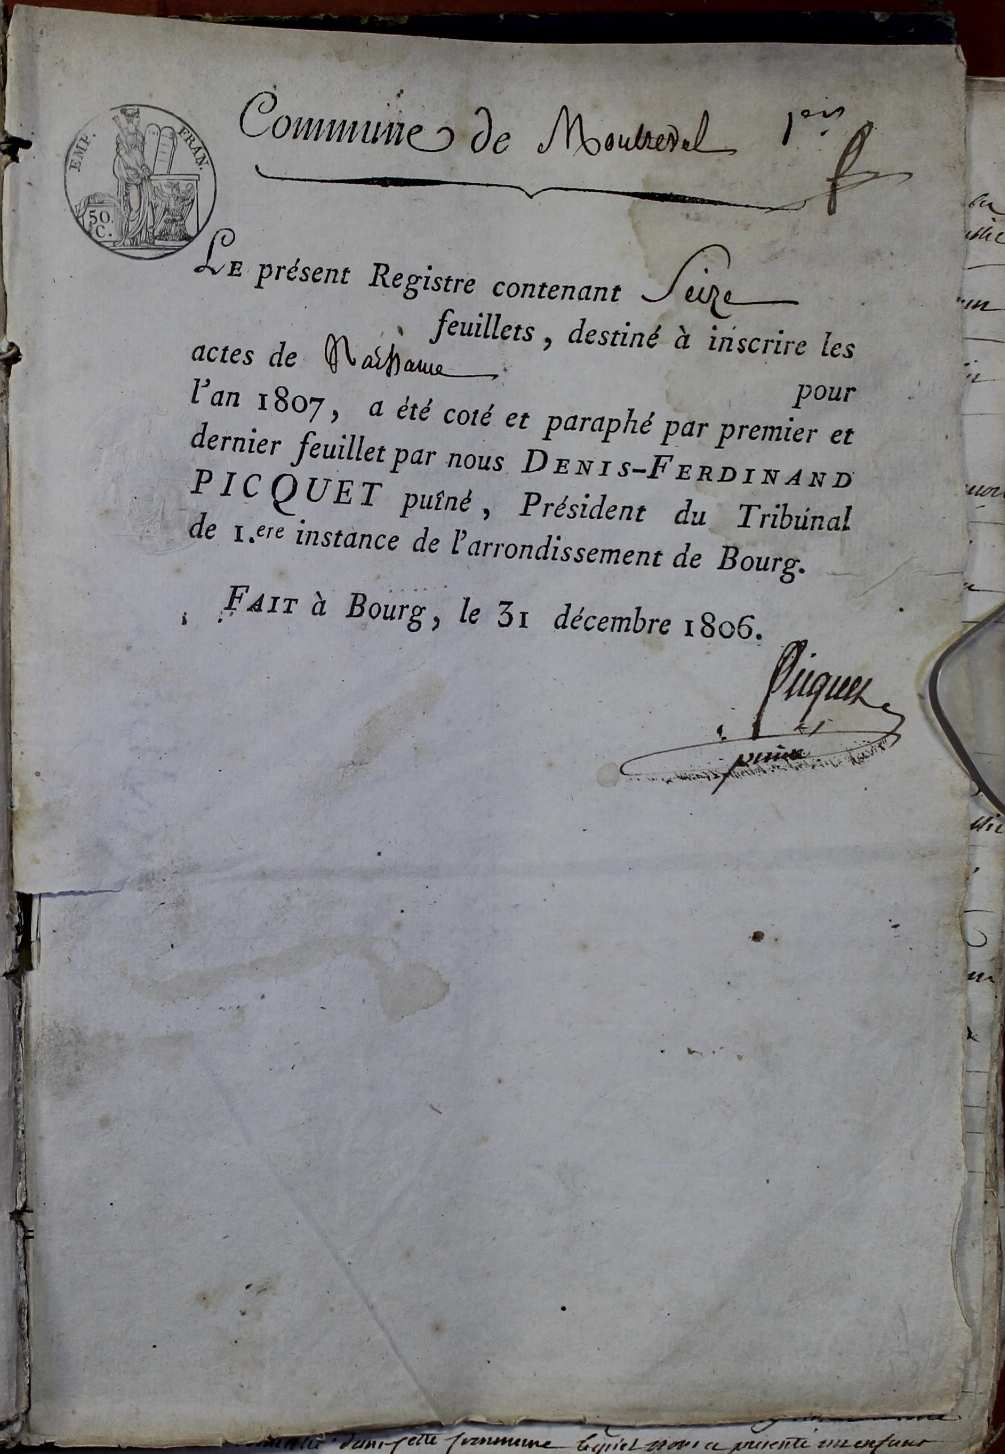 EMP. FRAN.
50. C.
Commune de Montrevel 1er
LE présent Registre contenant Seize
feuillets, destiné à inscrire les
actes de Naissance pour
l'an 1807, a été coté et paraphé par premier et
dernier feuillet par nous DENIS-FERDINAND
PICQUET puîné, Président du Tribunal
de 1.ere instance de l'arrondissement de Bourg.
FAIT à Bourg, le 31 décembre 1806.
Picquet
puiné
dans cette commune lequel nous a présenté un enfant